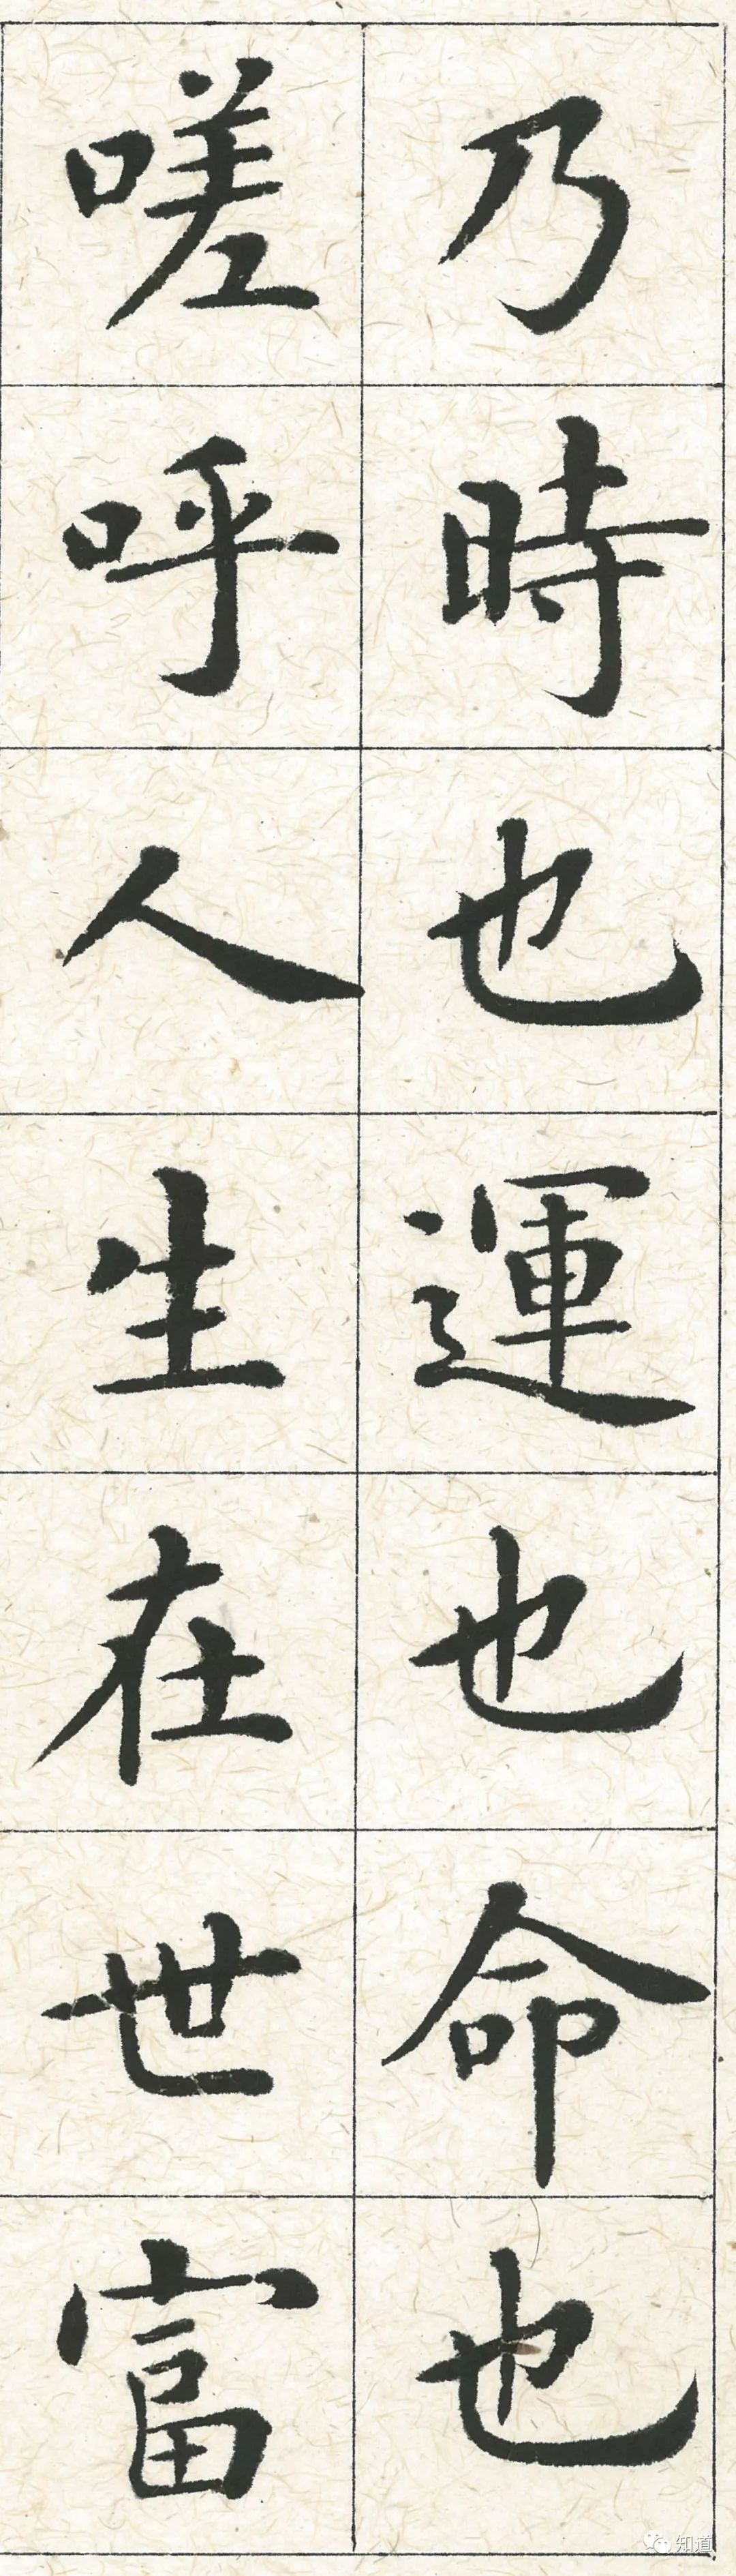 乃時也運也命也
嗟呼人生在世富
知道